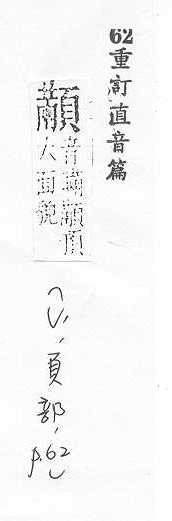 62重訂直音篇
顢
音瞞顢頇
大面貌
頁部、p.62